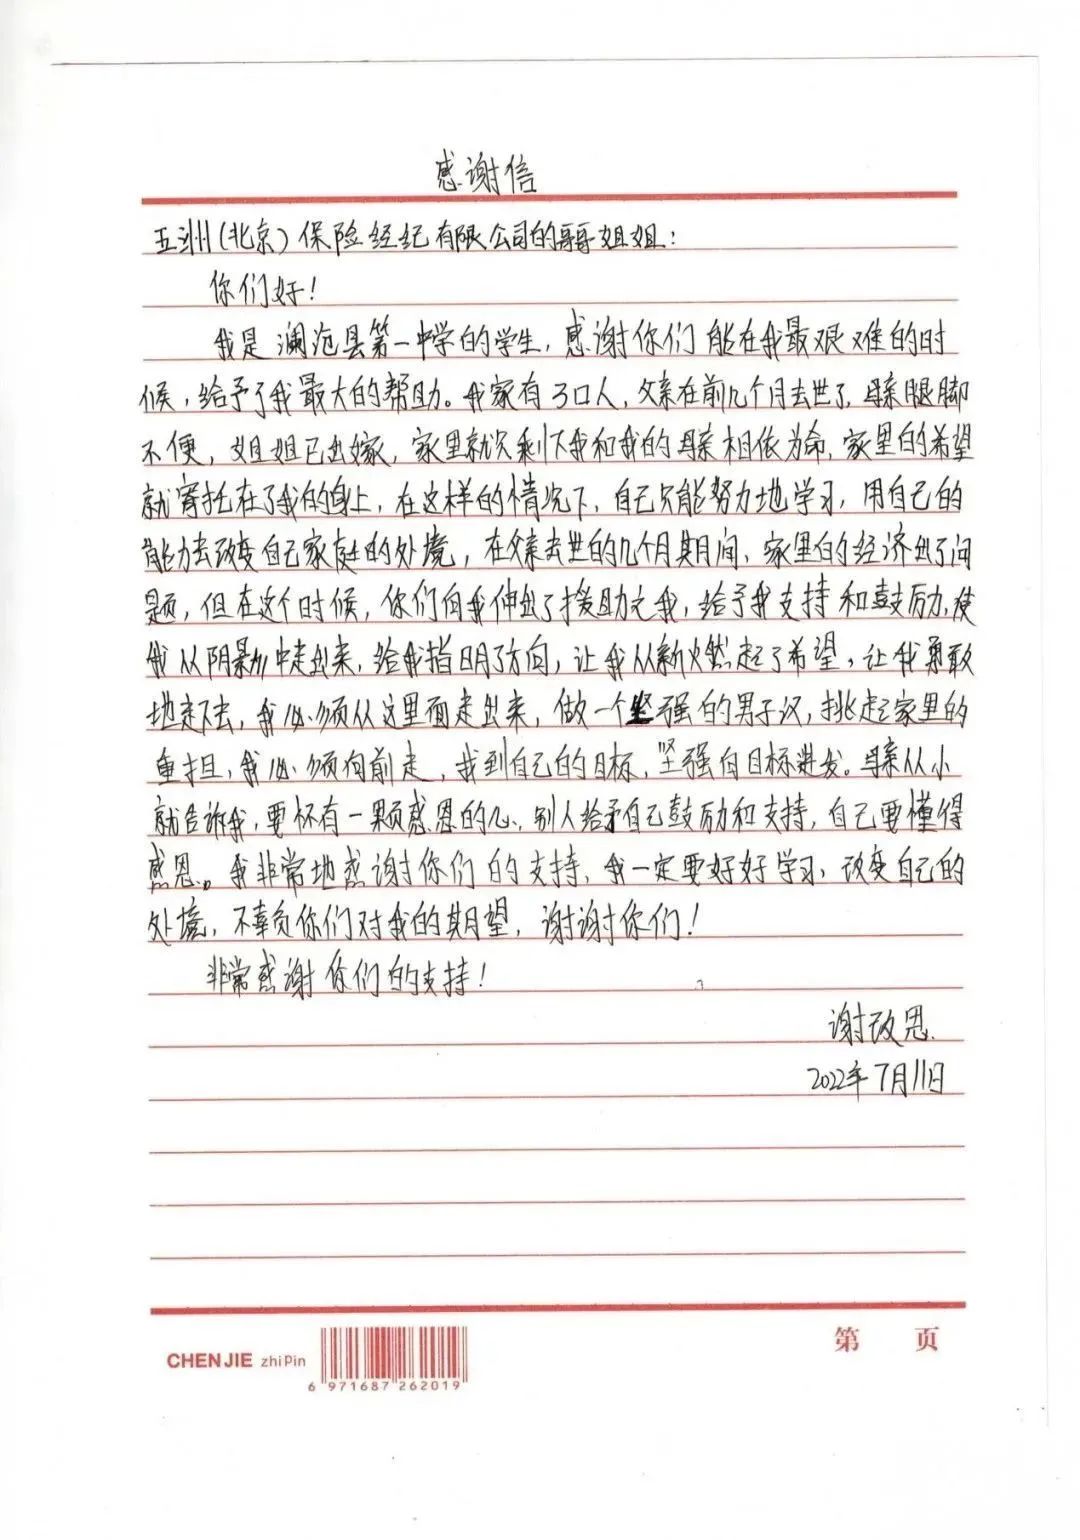 感谢信
五洲(北京)保险经纪有限公司的哥哥姐姐:
你们好!
我是澜沧县第一中学的学生,感谢你们能在我最艰难的时
候,给予了我最大的帮助。我家有3口人,父亲在前几个月去世了,母亲腿脚
不便,姐姐已出嫁,家里就只剩下我和我的母亲相依为命,家里的希望
就寄托在了我的身上,在这样的情况下,自己只能努力地学习,用自己的
能力去改变自己家庭的处境,在父亲去世的几个月期间,家里的经济出了问
题,但在这个时候,你们向我伸出了援助之手,给予我支持和鼓励,使
我从阴影中走出来,给我指明了方向,让我从新燃起了希望,让我勇敢
地走下去,我必须从这里面走出来,做一个坚强的男子汉,挑起家里的
重担,我必须向前走,找到自己的目标,坚强向目标进发。母亲从小
就告诉我,要怀有一颗感恩的心,别人给予自己鼓励和支持,自己要懂得
感恩。我非常地感谢你们的支持,我一定要好好学习,改变自己的
处境,不辜负你们对我的期望,谢谢你们!
非常感谢你们的支持!
谢改恩
2022年7月11日
CHENJIE zhiPin
6 971687 262019
第 页